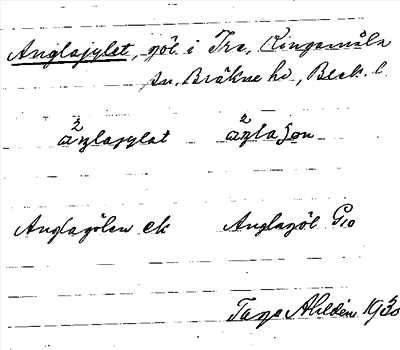 Anglagylet, göl i Tre, Ringamåla
sn. Bräkne hd., Blek. l.
aŋlagylət aŋla ʃøn
Anglagölen ek Anglagöl G10
Tage Ahldén 1930